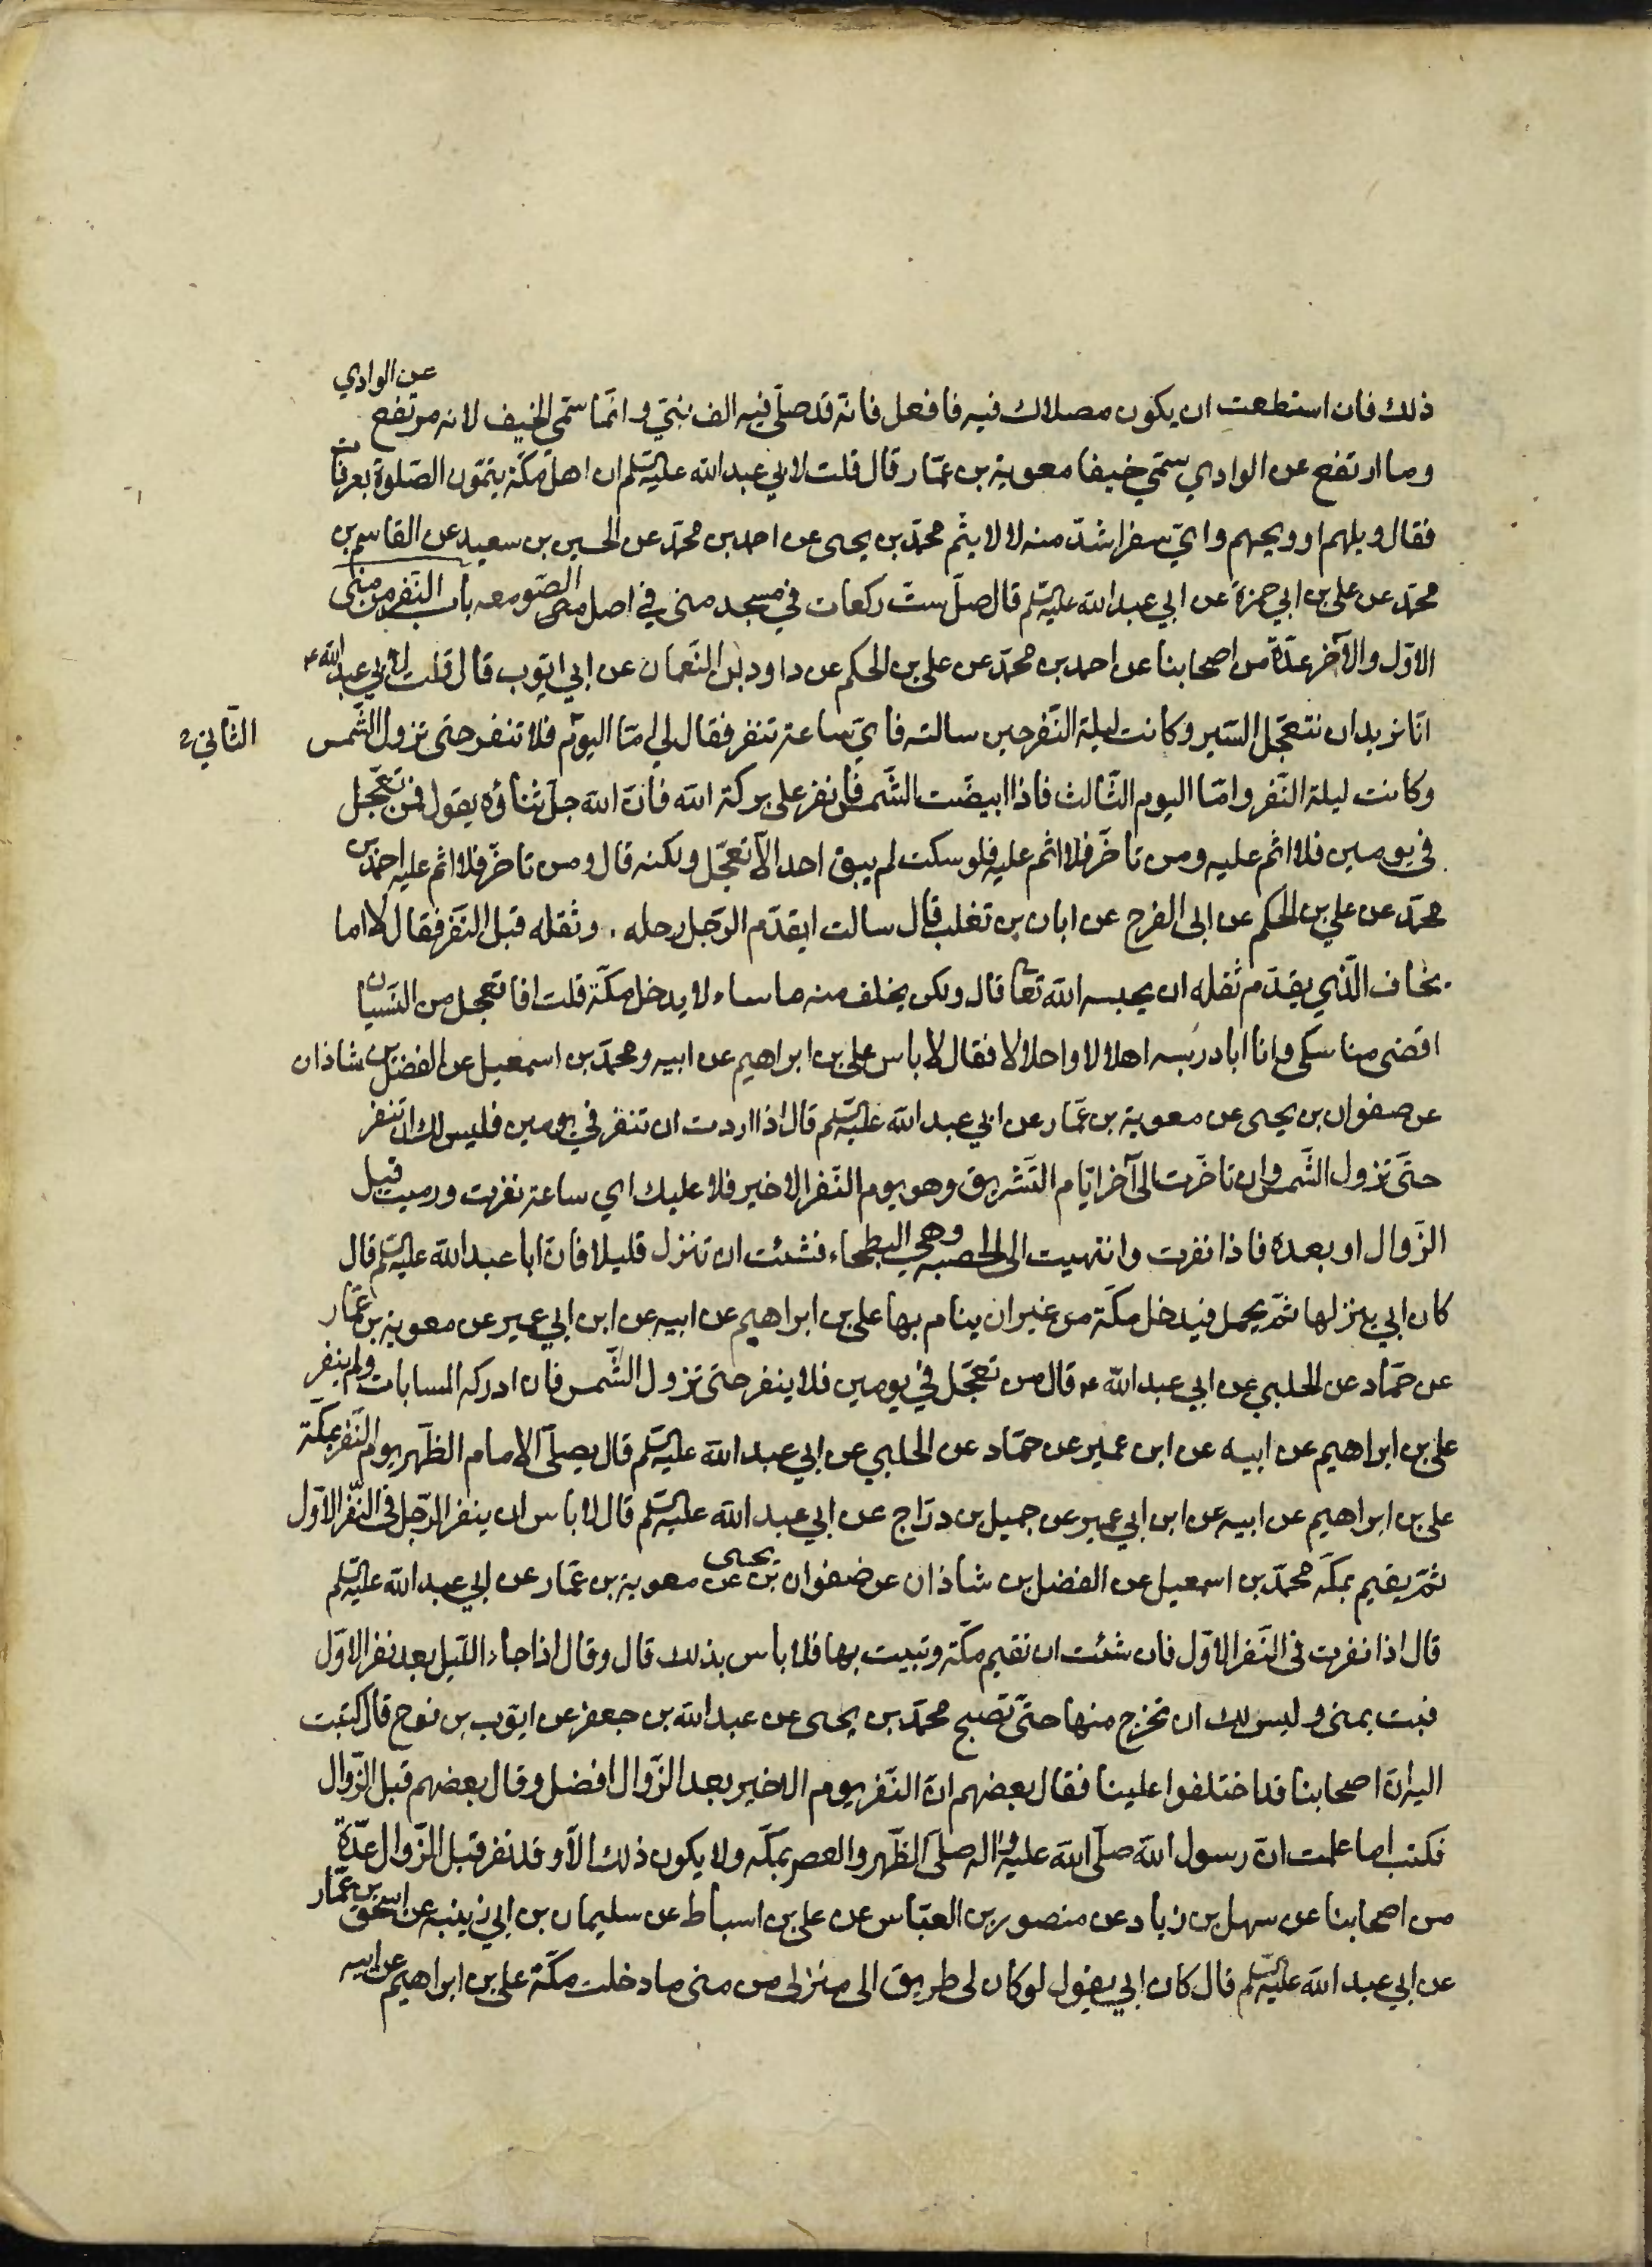 ذلك فان استطعت ان يكون مصلاك فيه فافعل فانّه قد صلّى فيه الف نبيّ وانّما سمّي الخيف لانه مرتفع عن الوادي
وما ارتفع عن الوادي سمّي خيفا معوية بن عمّار قال قلت لابي عبد الله عليه السلم ان اهل مكّة يتمّون الصّلوة بعرفات
فقال ويلهم او ويحهم وايّ سفر اشدّ منه لا لا يتم محمّد بن يحيى عن احمد بن محمّد عن الحسين بن سعيد عن القاسم بن
محمّد عن علي بن ابي حمزة عن ابي عبد الله عليه السلم قال صلّ ستّ ركعات في مسجد منى في اصل الصّومعه باب النّفر من منى
الاوّل والآخر عدّة من اصحابنا عن احمد بن محمّد عن علي بن الحكم عن داود بن النّعمان عن ابي ايّوب قال قلت لابي عبد الله ع
انّا نريد ان نتعجّل السّير وكانت ليلة النّفر حين سالته فايّ ساعة تنفر فقال لي امّا اليوم فلا تنفر حتى تزول الشّمس
الثّاني
وكانت ليلة النّفر وامّا اليوم الثّالث فاذا ابيضّت الشّمس فانفر على بركة الله فانّ الله جلّ ثناؤه يقول فمن تعجّل
في يومين فلا اثم عليه ومن تاخّر فلا اثم عليه فلو سكت لم يبق احد الّا تعجّل ولكنه قال ومن تاخّر فلا اثم عليه احمد بن
محمّد عن علي بن الحكم عن ابي الفرج عن ابان بن تغلب قال سالت ايقدّم الرّجل رحله وثقله قبل النّفر فقال لا اما
يخاف الّذي يقدّم ثقله ان يحبسه الله تعا قال ولكن يخلف منه ما ساء لا يدخل مكّة قلت افاتعجل من النّسيان
اقضى مناسكى وانا ابادر به اهلالا واحلالا فقال لا باس علي بن ابراهيم عن ابيه ومحمّد بن اسمعيل عن الفضل بن شاذان
عن صفوان بن يحيى عن معوية بن عمّار عن ابي عبد الله عليه السلم قال اذا اردت ان تنفر في يومين فليس لك ان تنفر
حتّى تزول الشّمس وان تاخّرت الى آخر ايّام التّشريق وهو يوم النّفر الاخير فلا عليك اي ساعة نفرت ورميت قبل
الزّوال او بعده فاذا نفرت وانتهيت الى الحصبه وهي البطحاء فشئت ان تنزل قليلا فانّ ابا عبد الله عليه السلم قال
كان ابي ينزلها ثمّ يحمل فيدخل مكّة من غير ان ينام بها علي بن ابراهيم عن ابيه عن ابن ابي عمير عن معوية بن عمّار
عن حمّاد عن الحلبي عن ابي عبد الله ع قال من تعجّل في يومين فلا ينفر حتى تزول الشّمس فان ادركه المسابات ولم ينفر
علي بن ابراهيم عن ابيه عن ابن عمير عن حمّاد عن الحلبي عن ابي عبد الله عليه السلم قال يصلّي الامام الظّهر يوم النّفر بمكّة
علي بن ابراهيم عن ابيه عن ابن ابي عمير عن جميل بن درّاج عن ابي عبد الله عليه السلم قال لا باس ان ينفر الرّجل في النّفر الاوّل
ثمّ يقيم بمكّه محمّد بن اسمعيل عن الفضل بن شاذان عن صفوان بن يحيى عن معوية بن عمّار عن ابي عبد الله عليه السلم
قال اذا نفرت في النّفر الاوّل فان شئت ان تقيم مكّة وتبيت بها فلا باس بذلك قال وقال اذا جاء اللّيل بعد نفر الاوّل
فبت بمنى وليس لك ان تخرج منها حتّى تصبح محمّد بن يحيى عن عبد الله بن جعفر عن ايّوب بن نوح قال كتبت
اليه انّ اصحابنا قد اختلفوا علينا فقال بعضهم انّ النّفر يوم الاخير بعد الزّوال افضل وقال بعضهم قبل الزّوال
فكتب اما علمت انّ رسول الله صلّى الله عليه واله صلّى الظّهر والعصر بمكّه ولا يكون ذلك الّا وقد نفر قبل الزّوال عدّة
من اصحابنا عن سهل بن زياد عن منصور بن العبّاس عن علي بن اسباط عن سليمان بن ابي زينبه عن اسحق بن عمّار
عن ابي عبد الله عليه السلم قال كان ابي يقول لو كان لى طريق الى منزلى من منى ما دخلت مكّة علي بن ابراهيم عن ابيه